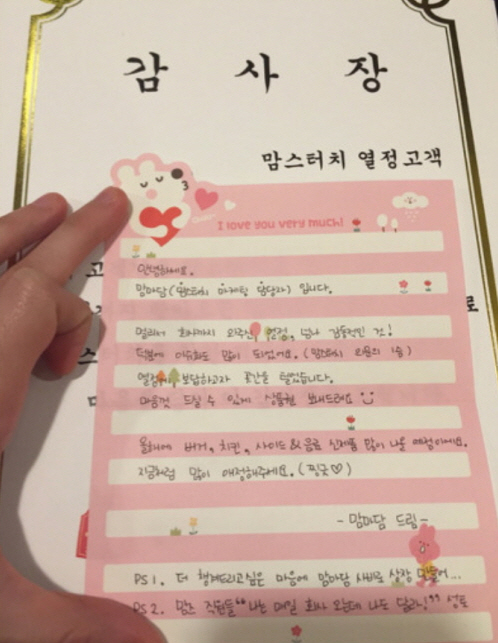 감 사 장
맘스터치 열정고객
I love you very much!
안녕하세요.
맘마담(맘스터치 마케팅 담당자) 입니다.
멀리서 회사까지 와주신 열정, 넘나 감동적인 것!
덕분에 이슈화도 많이 되었어요. (맘스터치 의문의 1승)
열정에 보답하고자 곳간을 털었습니다.
마음껏 드실 수 있게 상품권 보내드려요
올해에 버거, 치킨, 사이드&음료 신제품 많이 나올 예정이에요.
지금처럼 많이 애정해주세요. (찡긋♡)
-맘마담 드림-
PS1. 더 챙겨드리고싶은 마음에 맘마담 사비로 상장 만들어...
PS2. 맘즈 직원들 "나는 매일 회사 오는데 나도 달라!" 성토